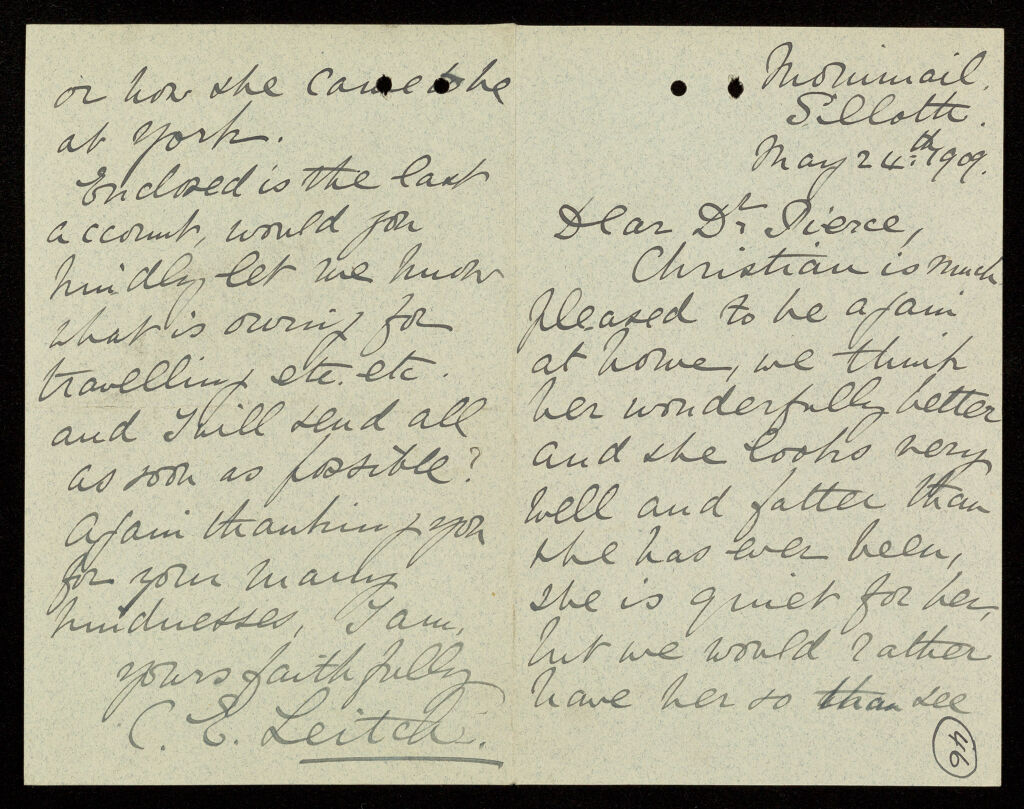 Monimail.
Silloth.
May 24th. 1909.
Dear Dr Pierce,
Christian is much
pleased to be again
at home, we think
her wonderfully better
and she looks very
well and fatter than
she has ever been,
she is quiet for her,
but we would rather
have her so than see
46
or how she came to be
at York.
Enclosed is the last
account, would you
kindly let me know
what is owing for
travelling etc. etc.
and I will send all
as soon as possible?
Again thanking you
for your many
kindnesses, I am,
yours faithfully
C. E. Leitch.